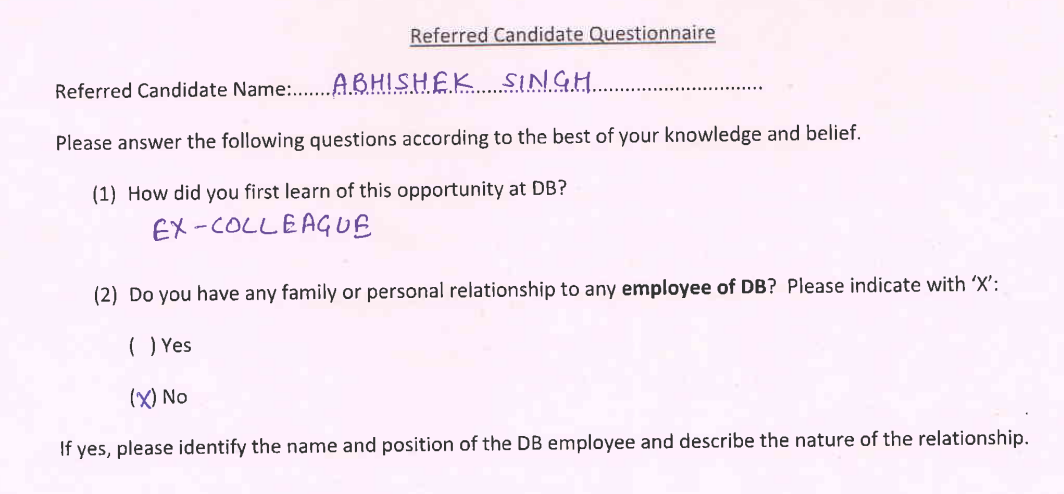 Referred Candidate Questionnaire
Referred Candidate Name:.......ABHISHEK.....SINGH.................................
Please answer the following questions according to the best of your knowledge and belief.
(1) How did you first learn of this opportunity at DB?
EX-COLLEAGUE
(2) Do you have any family or personal relationship to any employee of DB? Please indicate with 'X':
( ) Yes
(X) No
If yes, please identify the name and position of the DB employee and describe the nature of the relationship.